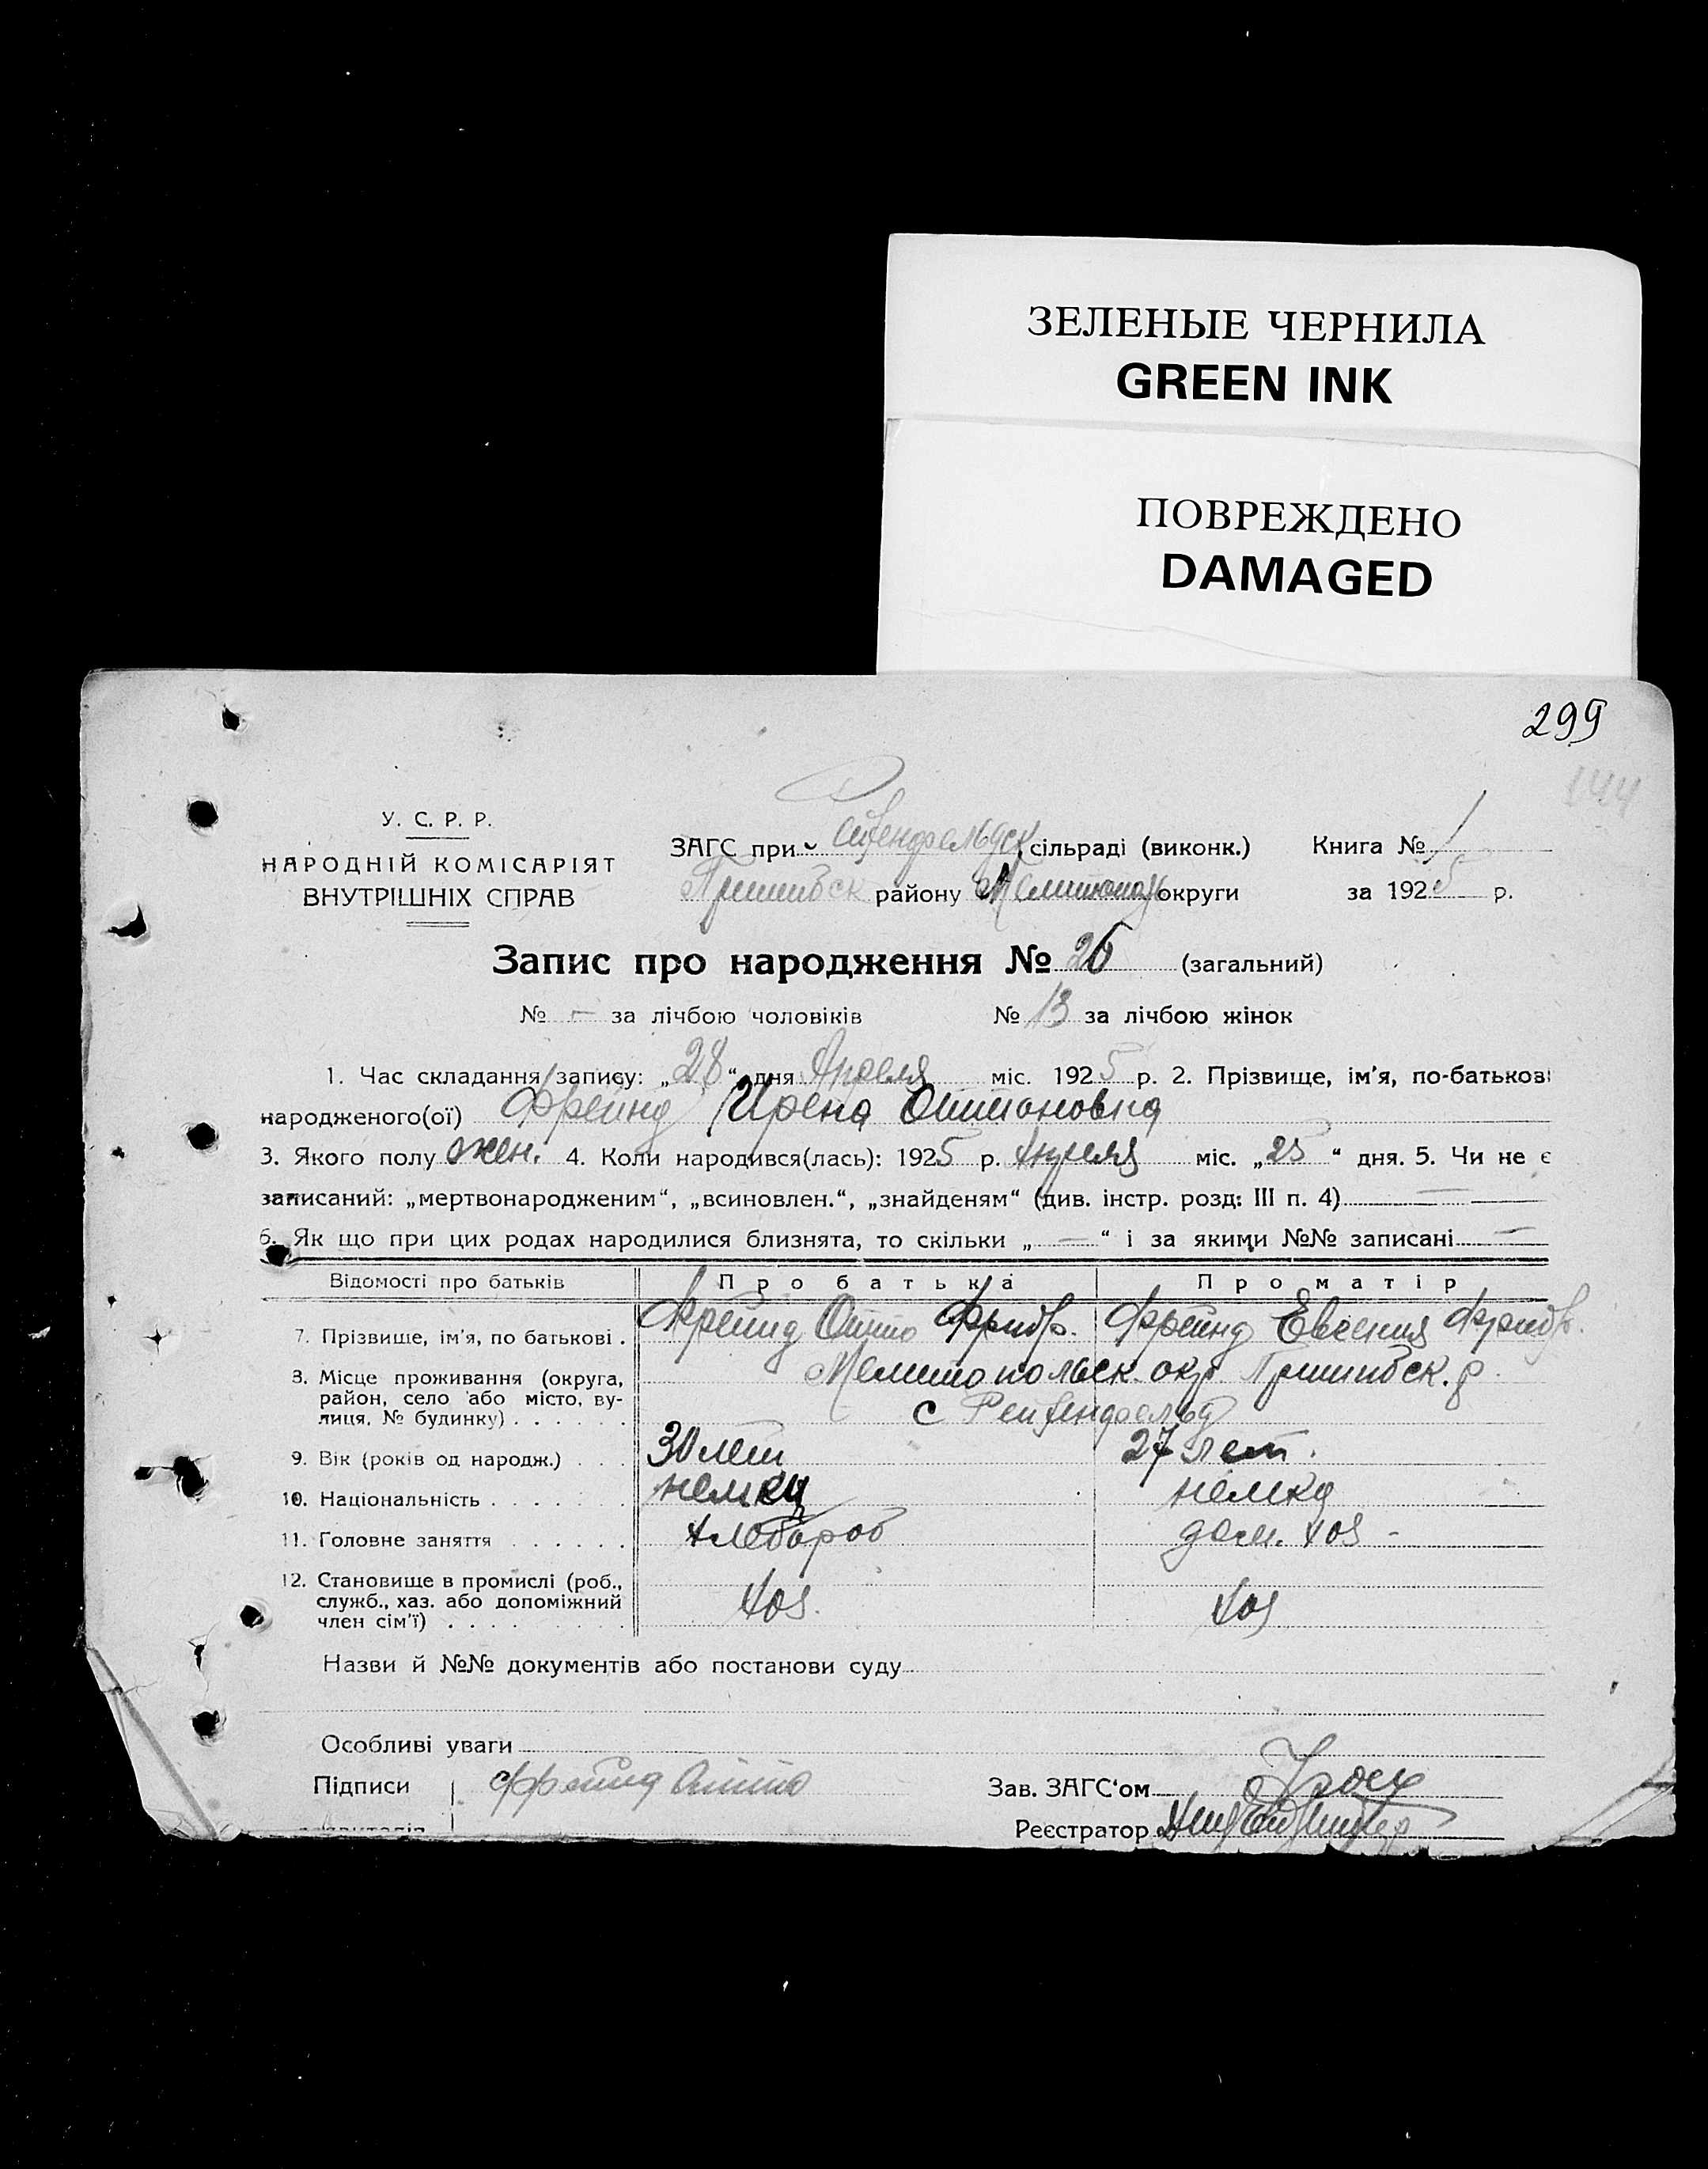 ЗЕЛЕНЫЕ ЧЕРНИЛА
GREEN INK
ПОВРЕЖДЕНО
DAMAGED
299
144
У. С. Р. Р.
НАРОДНІЙ КОМІСАРІЯТ
ВНУТРІШНІХ СПРАВ
ЗАГС при сільраді (виконк.) Книга № 1
Пришибск району Мелитопол округи за 1925 р.
Запис про народження № 26 (загальний)
№ — за лічбою чоловіків № 13 за лічбою жінок
1. Час складання запису: „28“ дня Апреля міс. 1925 р. 2. Прізвище, ім’я, по-батькові
народженого(ої) Фрейнд Ирена Оттоновна
3. Якого полу жен. 4. Коли народився(лась): 1925 р. Апреля міс. „25“ дня. 5. Чи не є
записаний: „мертвонародженим“, „всиновлен.“, „знайденям“ (див. інстр. розд: III п. 4) —
6. Як що при цих родах народилися близнята, то скільки „ — “ і за якими №№ записані —
Відомості про батьків Про батька Про матір
7. Прізвище, ім’я, по батькові . Фрейнд Отто Фридр. Фрейнд Евгения Фридр.
8. Місце проживання (округа, район, село або місто, вулиця, № будинку) . . . . . . Мелитопольск. окр. Пришибск. р.
с Рейхенфельд
9. Вік (років од народж.) . . . 30 лет 27 лет.
10. Національність . . . . . . . немец немка
11. Головне заняття . . . . . . хлебороб дом. хоз -
12. Становище в промислі (роб., служб., хаз. або допоміжний член сім’ї) . . . . . . . . . хоз. хоз
Назви й №№ документів або постанови суду
Особливі уваги
Підписи Фрейнд Отто Зав. ЗАГС‘ом
Реєстратор